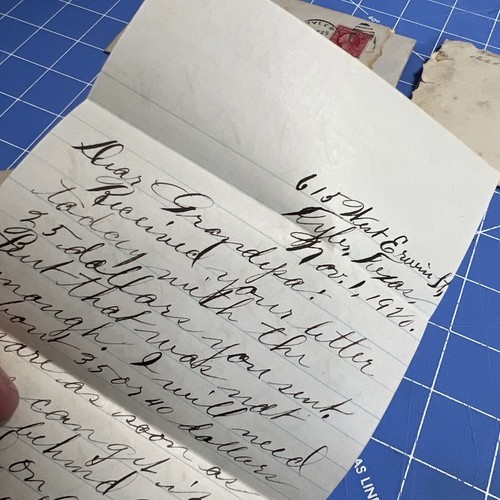 615 West Erwin St,
Tyler, Texas,
Nov. 1, 1920.
Dear Grandpa:
Received your letter
today with the
25 dollars you sent.
But that was not
enough. I will need
35 or 40 dollars
more as soon as
can get it
behind
on